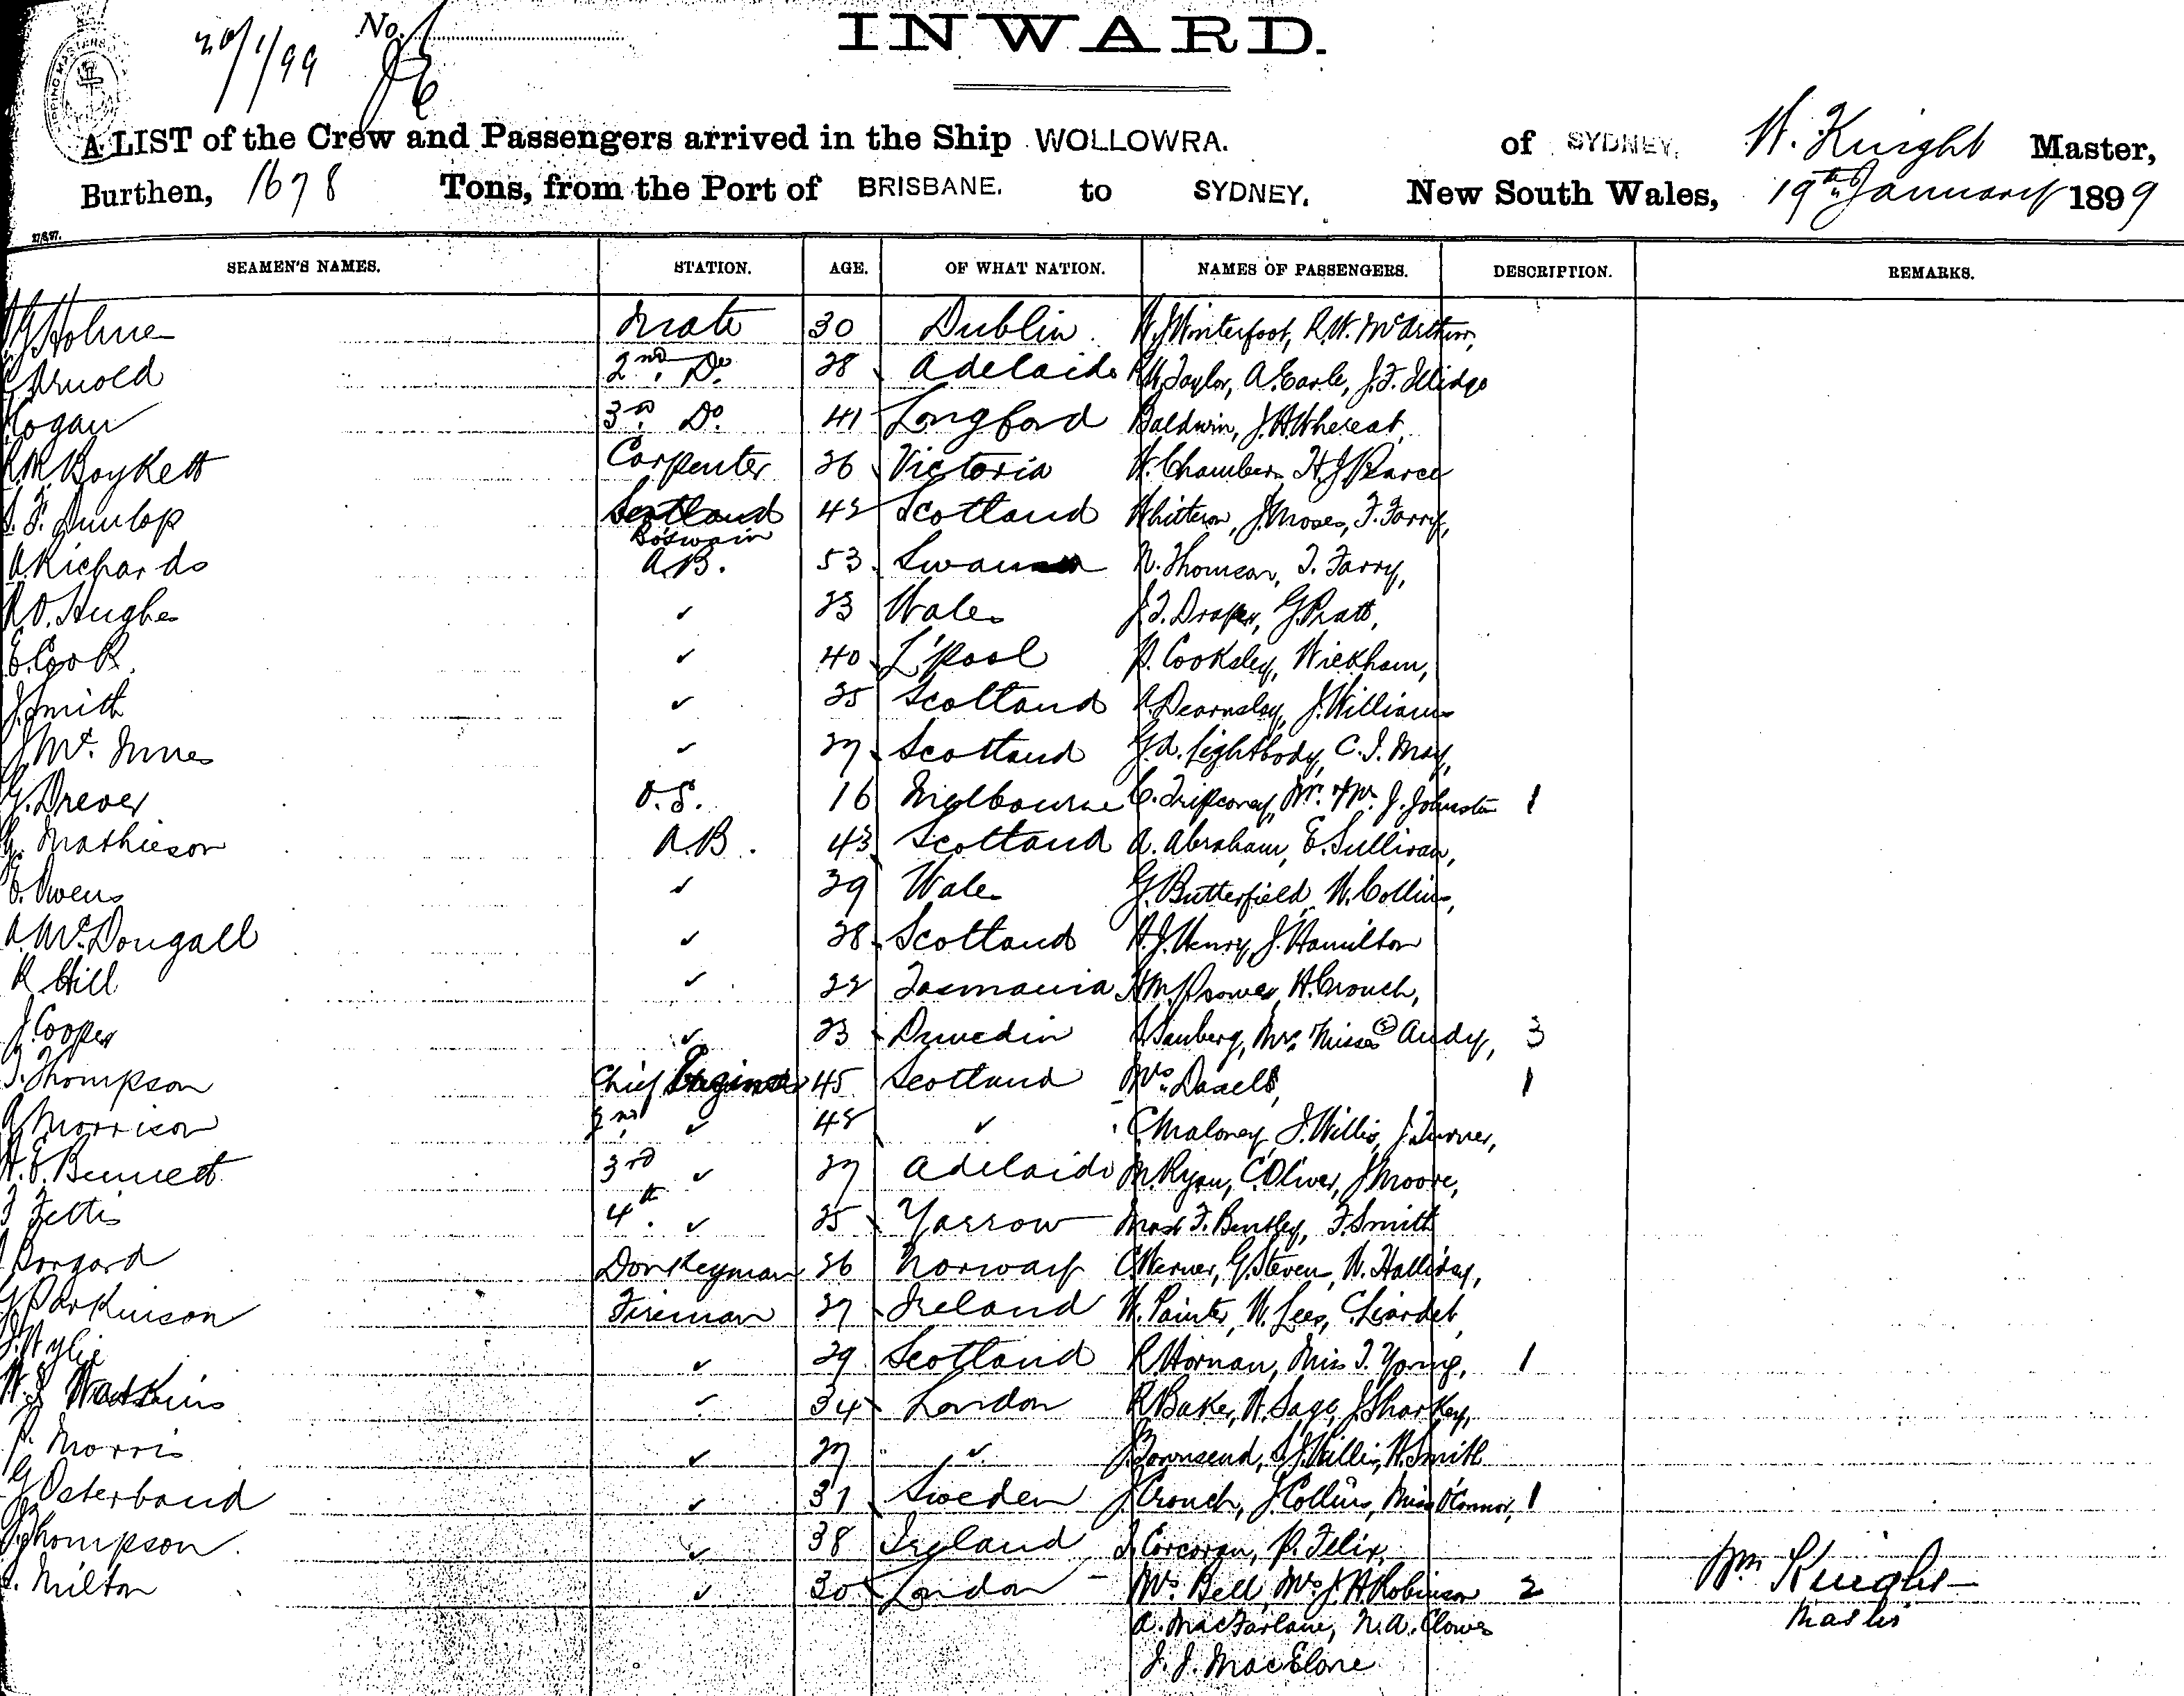 20/1/99 No.
INWARD.
A LIST of the Crew and Passengers arrived in the Ship WOLLOWRA. of SYDNEY, W. Knight Master,
Burthen, 1678 Tons, from the Port of BRISBANE. to SYDNEY. New South Wales, 19th January 1899
27/8/97.
SEAMEN'S NAMES. STATION. AGE. OF WHAT NATION. NAMES OF PASSENGERS. DESCRIPTION. REMARKS.
Holme Mate 30 Dublin W. J. Winterfoot, R. W. McArthur,
Arnold 2nd Do. 28 Adelaide Taylor, A. Earle, J. F. Illidge
Hogan 3rd Do. 41 Longford Baldwin, J. H. Whereat,
Boykett Carpenter 26 Victoria W. Chambers, H. J. Pearce
Dunlop Scotland Bo'swain 42 Scotland Whitteron, J. Moses, F. Farry,
A. Richards A.B. 53 Swansea N. Thomson, T. Farry,
R. O. Hughes ✓ 23 Wales J. F. Draper, G. Pratt,
E. Cook. ✓ 40 L'pool P. Cooksley, Wickham,
J. Smith ✓ 25 Scotland A. Dearnsley, J. Williams
J. Mc. Innes ✓ 27 Scotland G. A. Lightbody, C. J. May,
G. Drever O.S. 16 Melbourne C. Tripconey, Mr. & Mrs. J. Johnston 1
G. Mathieson A.B. 43 Scotland A. Abraham, E. Sullivan,
E. Owens ✓ 29 Wales G. Butterfield, W. Collins,
A. McDougall ✓ 28 Scotland A. J. Henry, J. Hamilton
R Hill ✓ 22 Tasmania H. Crouch,
J. Cooper ✓ 23 Dunedin Mrs. Misses (2) Andy, 3
T. Thompson Chief Engineer 45 Scotland Mrs. Daxell, 1
A Morrison 2nd ✓ 42 ✓ C. Maloney, J. Willis, J. Turner,
H. E. Bennett 3rd ✓ 27 Adelaide M. Ryan, C. Oliver, J. Moore,
Fettis 4th. ✓ 25 Yarrow F. Bentley, F. Smith
Borgard Donkeyman 26 Norway C. Werner, G. Steven, W. Halliday,
G Parkinson Fireman 27 Ireland W. Painter, W. Lees, C. Liardet,
J. Wylie ✓ 29 Scotland R. Hornan, Miss T. Young, 1
W. J. Watkins ✓ 34 London R. Baker, W. Sage, J. Sharkey,
P. Morris ✓ 27 ✓ J. Townsend, S. J. Willis, W. Smith
G Osterbaud ✓ 31 Sweden J. Crouch, J. Collins, Miss O'Connor, 1
J. Thompson. ✓ 38 Ireland J. Corcoran, P. Felix,
Milton ✓ 30 London Mrs. Bell, Mrs. J. H. Robinson 2 Wm Knight
A. MacFarlane, N. A. Clowes Master
J. J. MacElone